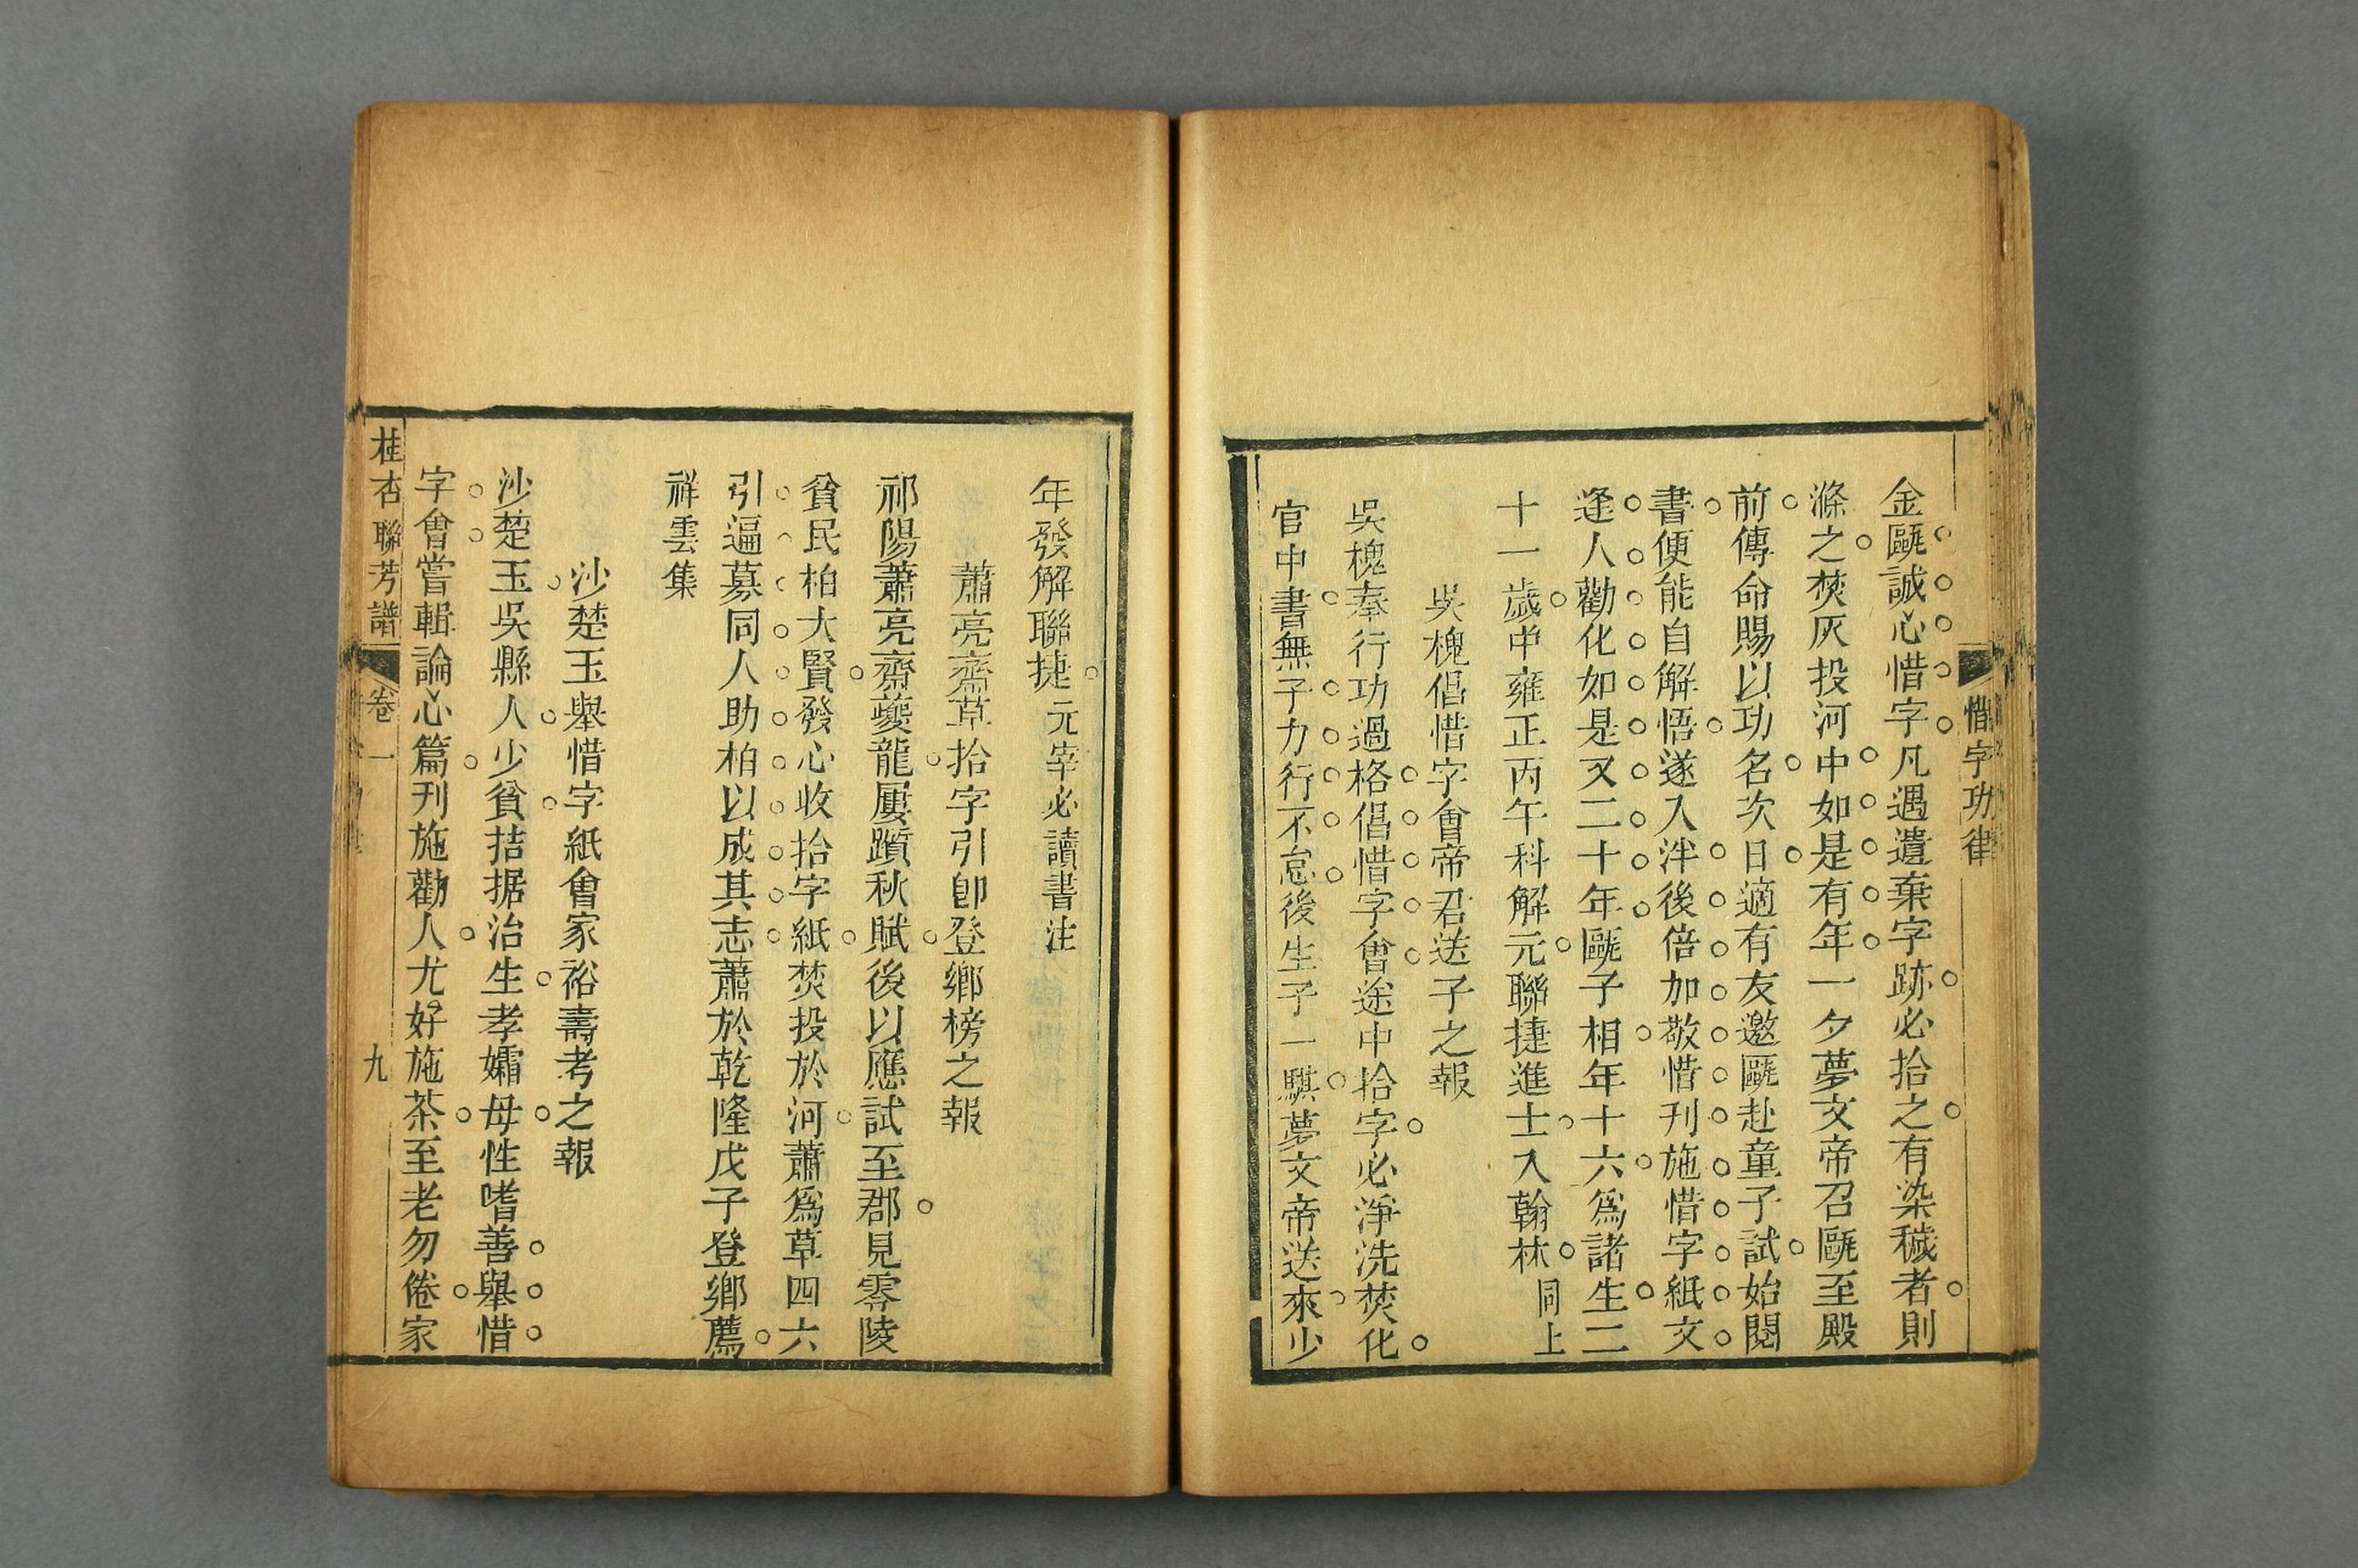 惜字功律
金甌誠心惜字凡遇遺棄字跡必拾之有染穢者則
滌之焚灰投河中如是有年一夕夢文帝召甌至殿
前傳命賜以功名次日適有友邀甌赴童子試始閱
書便能自解悟遂入泮後倍加敬惜刋施惜字紙文
逢人勸化如是又二十年甌子相年十六爲諸生二
十一歲中雍正丙午科解元聯捷進士入翰林同上
吳槐倡惜字會帝君送子之報
吳槐奉行功過格倡惜字會途中拾字必淨洗焚化
官中書無子力行不怠後生子一騏夢文帝送來少
年發解聯捷元宰必讀書注
蕭亮齋草拾字引卽登鄉榜之報
祁陽蕭亮齋夔龍屢躓秋賦後以應試至郡見零陵
貧民柏大賢發心收拾字紙焚投於河蕭爲草四六
引逼募同人助柏以成其志蕭於乾隆戊子登鄉薦
祥雲集
沙楚玉舉惜字紙會家裕壽考之報
沙楚玉吳縣人少貧拮据治生孝孀母性嗜善舉惜
字會嘗輯論心篇刊施勸人尤好施茶至老勿倦家
桂杏聯芳譜 卷一 九